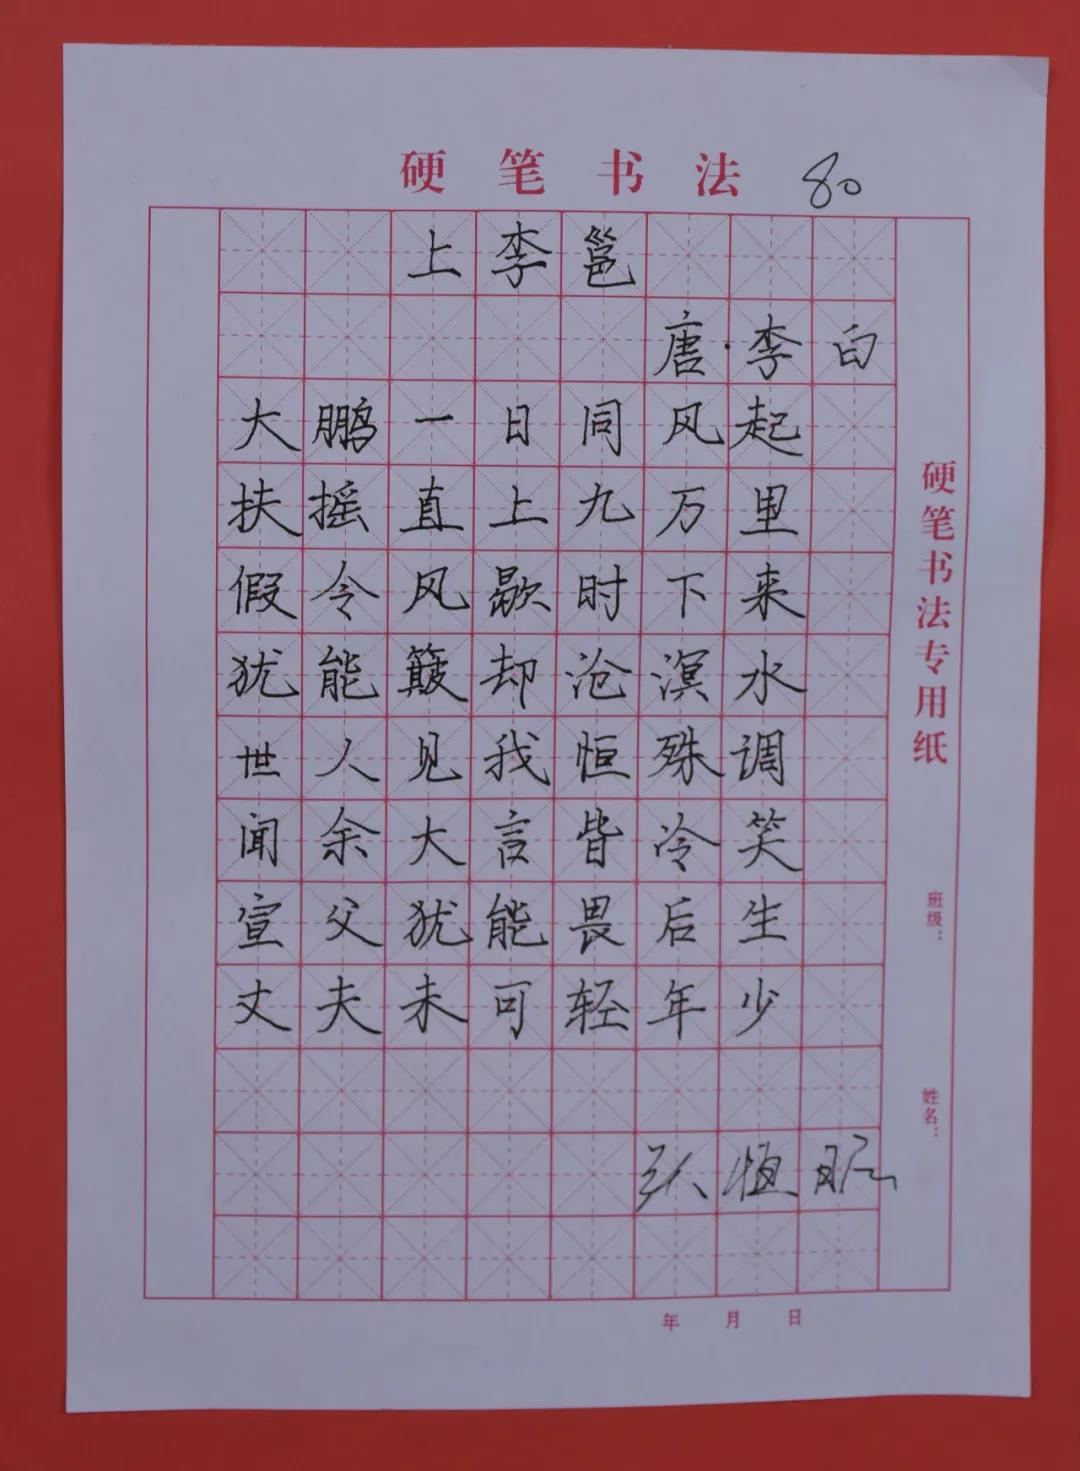 硬笔书法 80
上李邕
唐·李白
大鹏一日同风起
扶摇直上九万里
假令风歇时下来
犹能簸却沧溟水
世人见我恒殊调
闻余大言皆冷笑
宣父犹能畏后生
丈夫未可轻年少
硬笔书法专用纸
班级：
姓名：
年 月 日